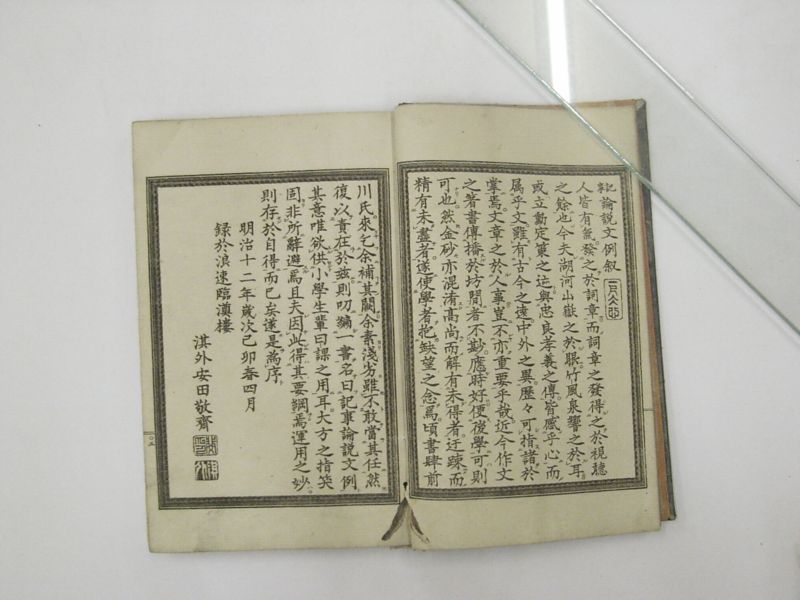 記事論説文例叙
人皆有氣發之於詞章而詞章之發得之於視聽
之餘也今夫湖河山嶽之於眼竹風泉響之於耳
或立動定策之迹與忠良孝義之傳皆感乎心而
属乎文雖有古今之遠中外之異歷々可指諸於
掌焉文章之於人事豈不亦重要乎哉近今作文
之著書傳播於坊間者不尠應時好便後學可則
可也然金砂亦混淆高尚而解有未得者迂踈而
精有未盡者遂使學者抱缺望之念焉頃書肆前
川氏來乞余補其闕余素淺劣雖不敢當其任然
復以責在於玆則叨攟一書名曰記事論説文例
其意唯欲供小學生輩日課之用耳大方之指笑
固非所辭避焉且夫因此得其要綱焉運用之妙
則存於自得而已矣遂是為序
明治十二年歲次己卯春四月
錄於浪速臨漢樓
淇外安田敬齋